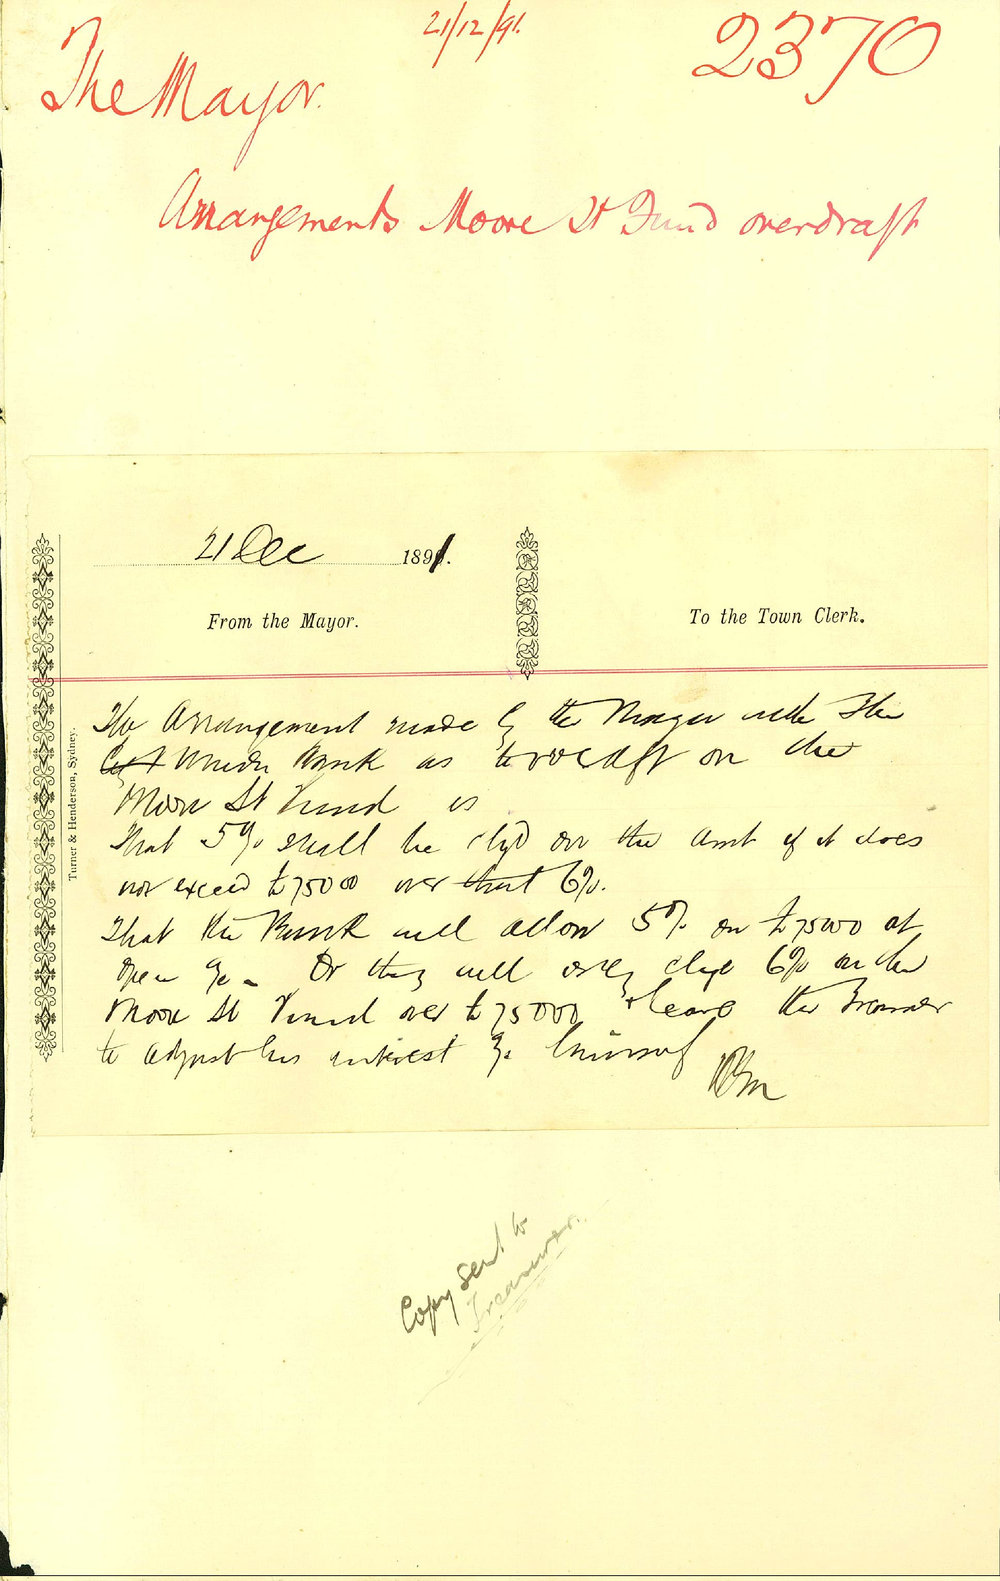 21/12/91.
2370
The Mayor.
Arrangements Moore St Fund overdraft
21 Dec 1891.
From the Mayor.
To the Town Clerk.
Turner & Henderson, Sydney.
The Arrangement made by the Mayor with The
City Union Bank as to overdft on the
Moore St Fund is
That 5% shall be chgd on the amt if it does
not exceed £75000 over that 6%.
That the Bank will allow 5% on £75000 at
open %. Or they will only chge 6% on the
Moore St Fund over £75000 & leave the Treasurer
to adjust his interest % himself
Copy sent to
Treasurer